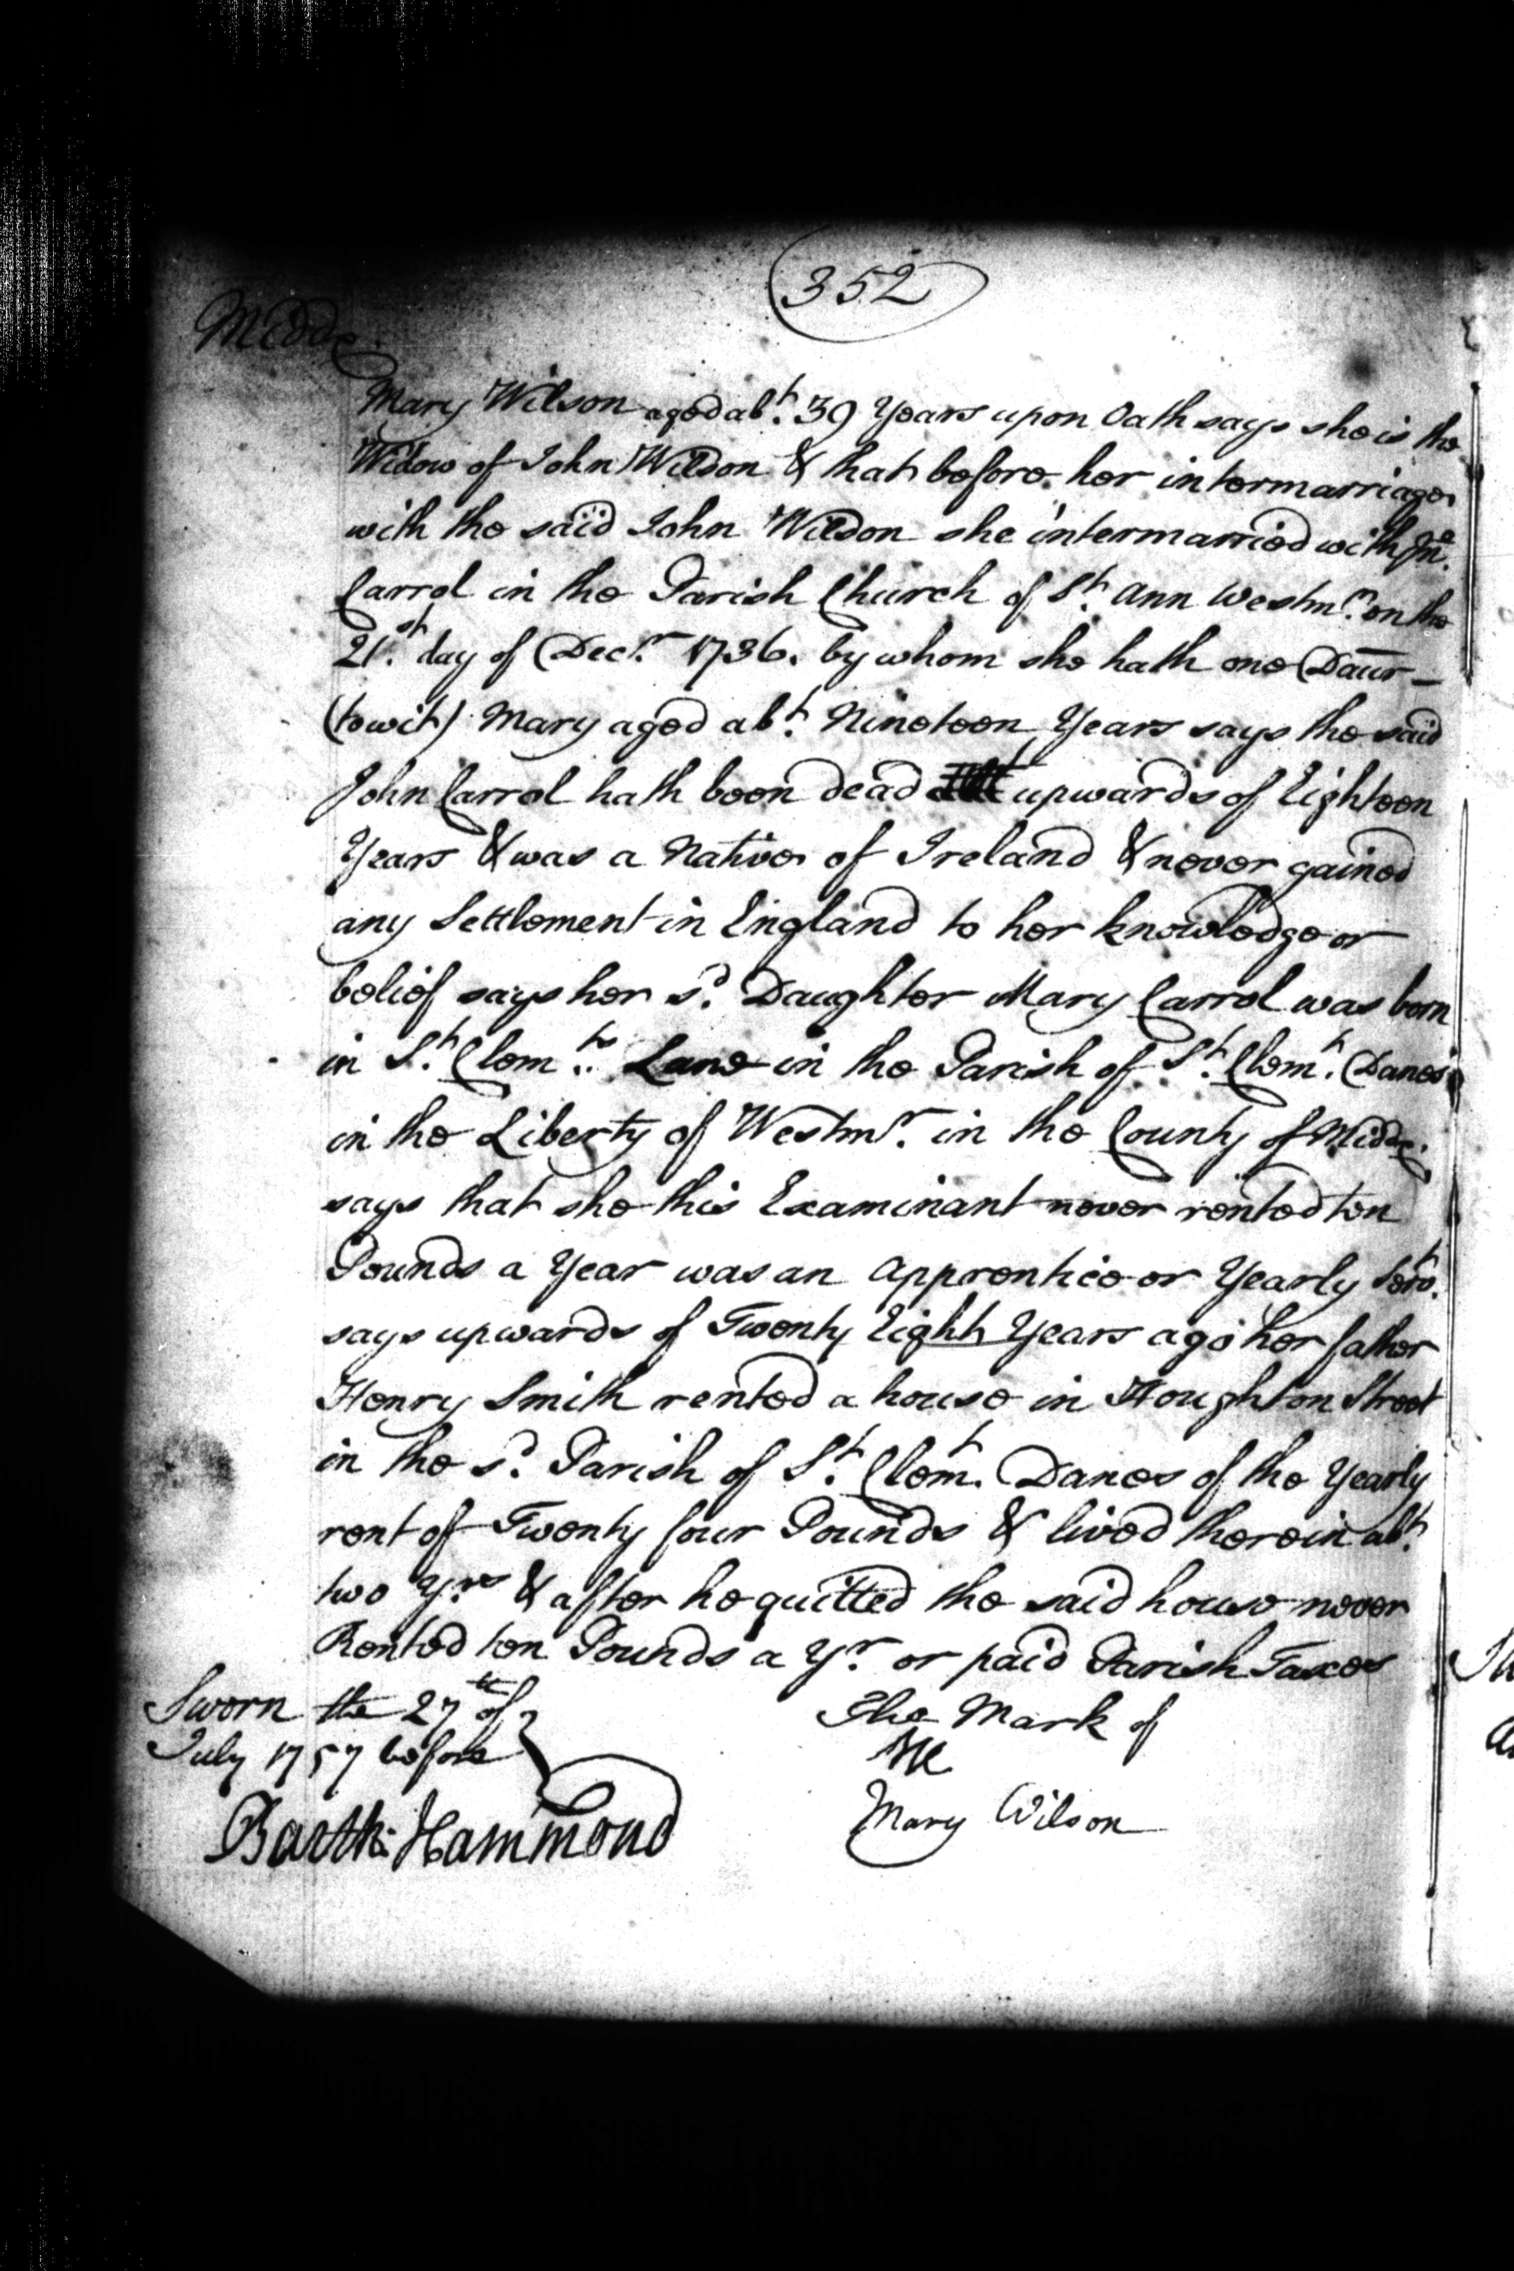 352
Middx.
Mary Wilson aged abt. 39 Years upon Oath says she is the
Widow of John Wilson & that before her intermarriage
with the said John Wilson she intermarried with Jno.
Carrol in the Parish Church of St. Ann Westmr. on the
21st. day of Decr. 1736. by whom she hath one Daur –
(to wit) Mary aged abt. Nineteen Years says the said
John Carrol hath been dead upwards of Eighteen
Years & was a Native of Ireland & never gained
any Settlement in England to her knowledge or
belief says her sd. Daughter Mary Carrol was born
in St. Clemts. Lane in the Parish of St. Clemt. Danes
in the Liberty of Westmr. in the County of Middx.
says that she this Examinant never rented ten
Pounds a Year was an Apprentice or Yearly Servt.
says upwards of Twenty Eight Years ago her father
Henry Smith rented a house in Houghton Street
in the sd. Parish of St. Clemt. Danes of the Yearly
rent of Twenty four Pounds & lived therein abt.
two Yrs & after he quitted the said house never
Rented ten Pounds a Yr. or paid Parish Taxes
Sworn the 27th of
July 1757 before
Barth: Hammond
The Mark of
Mary Wilson